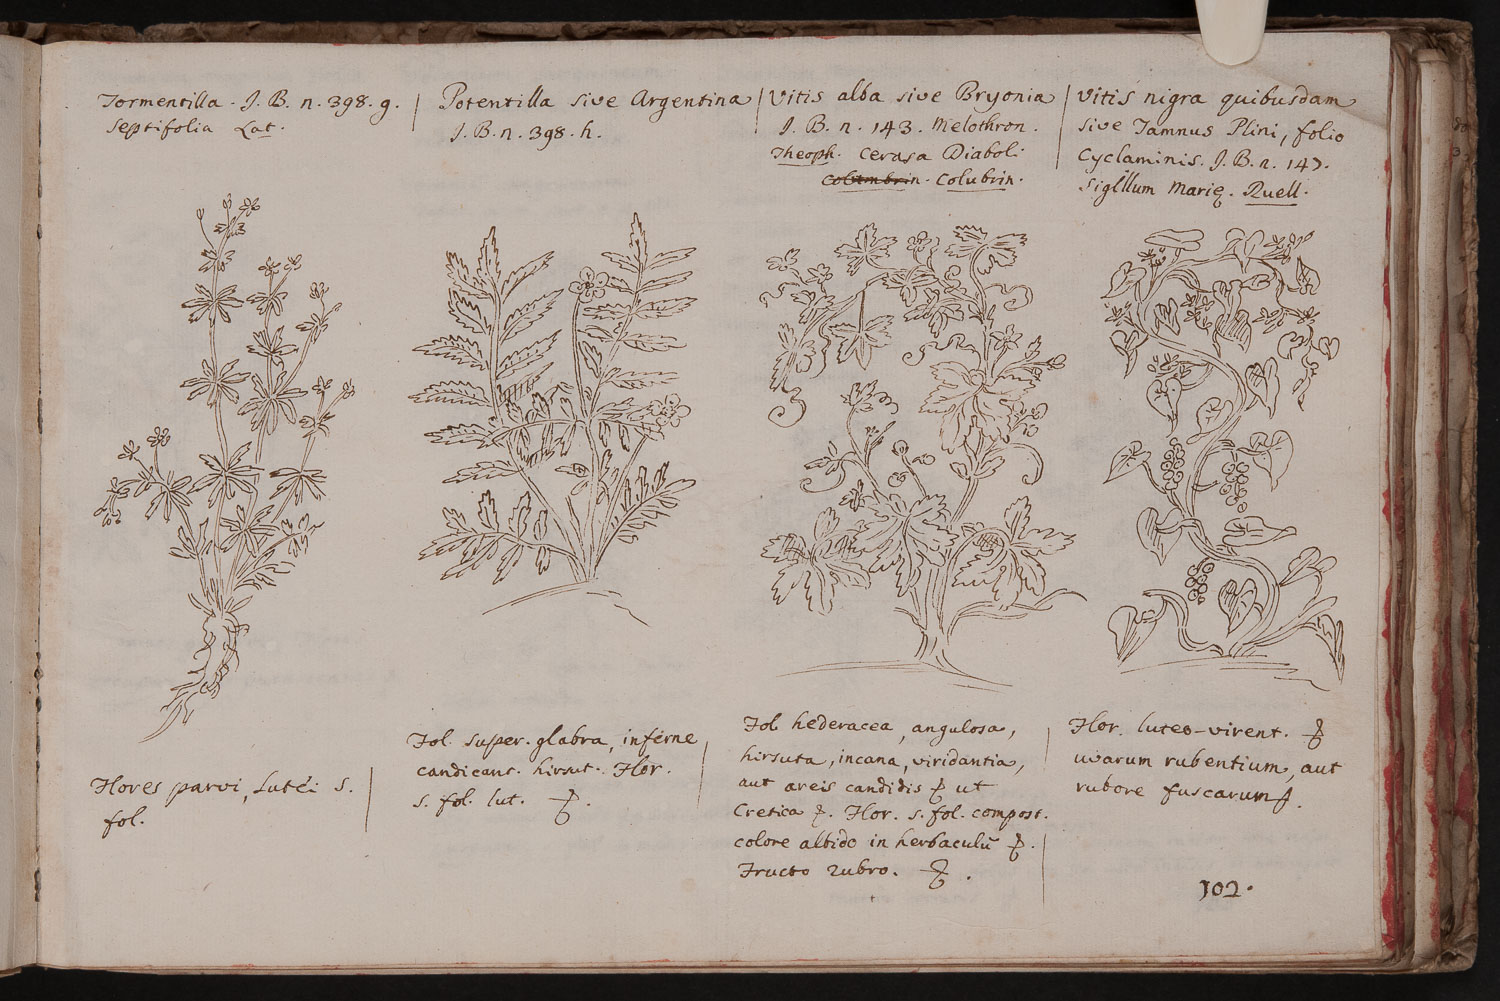 Tormentilla. J. B. n. 398. g.
Septifolia Lat.
Potentilla sive Argentina
J. B. n. 398. h.
Vitis alba sive Bryonia
J. B. n. 143. Melothron.
Theoph. Cerasa Diaboli
Colubrin.
Vitis nigra quibusdam
sive Tamnus Plini, folio
Cyclaminis. J. B. n. 147.
Sigillum Mariæ. Ruell.
Flores parvi, Lutei s.
fol.
Fol. super. glabra, inferne
candicant. hirsut. Flor.
s. fol. lut.
Fol. hederacea, angulosa,
hirsuta, incana, viridantia,
aut areis candidis ut
Cretica. Flor. s. fol. compost.
colore albido in herbaculū
Fructo rubro.
Flor. luteo-virent.
uvarum rubentium, aut
rubore fuscarum.
102.